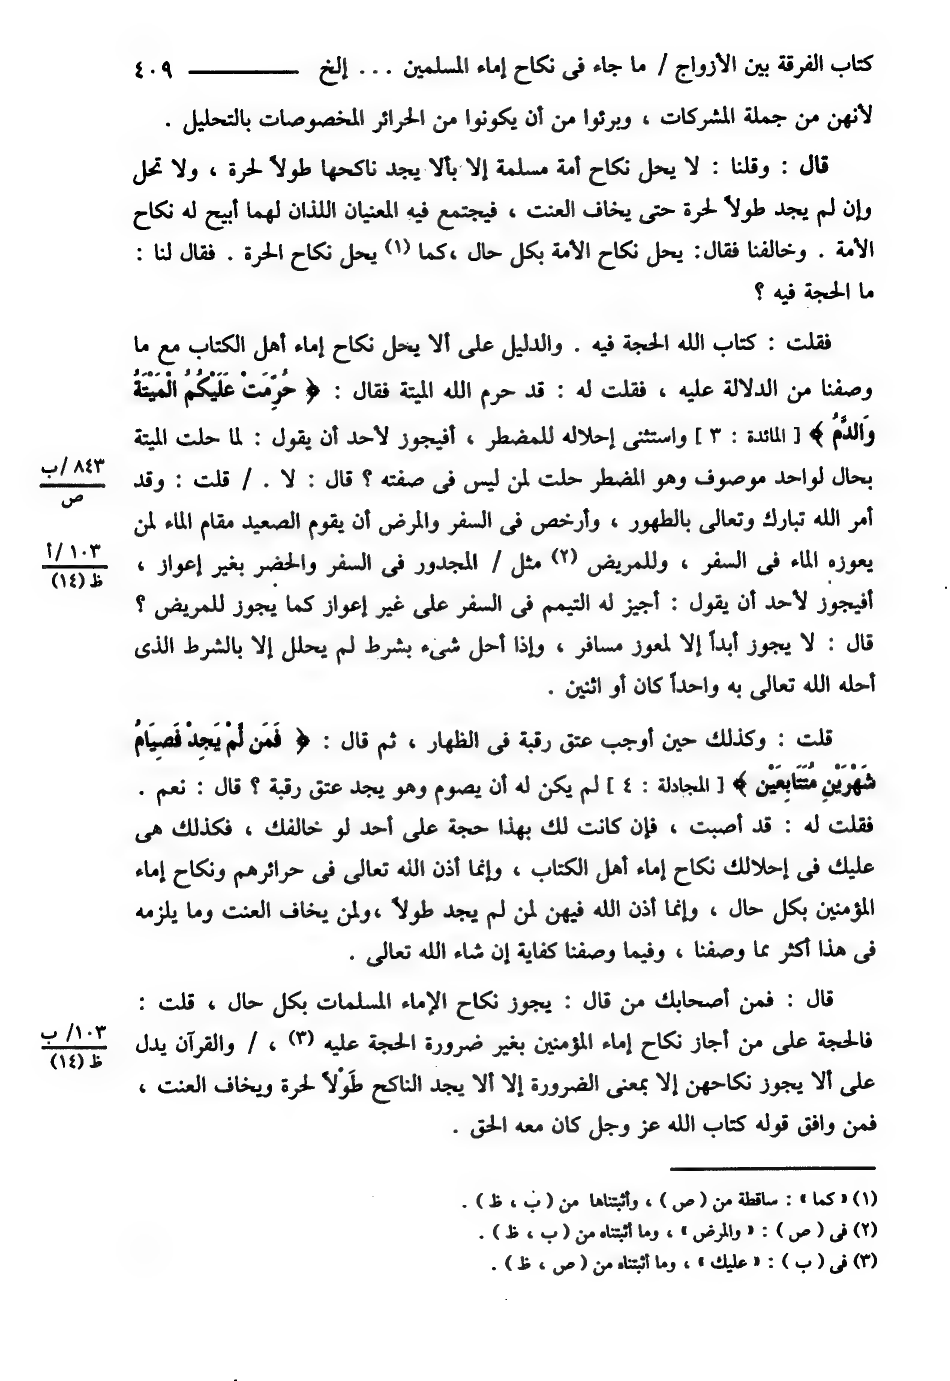 كتاب الفرقة بين الأزواج / ما جاء فى نكاح إماء المسلمين ... إلخ ــــــــــــ ٤٠٩
لأنهن من جملة المشركات ، وبرئوا من أن يكونوا من الحرائر المخصوصات بالتحليل .
قال : وقلنا : لا يحل نكاح أمة مسلمة إلا بألا يجد ناكحها طولاً لحرة ، ولا تحل
وإن لم يجد طولاً لحرة حتى يخاف العنت ، فيجتمع فيه المعنيان اللذان لهما أبيح له نكاح
الأمة . وخالفنا فقال : يحل نكاح الأمة بكل حال ،كما (١) يحل نكاح الحرة . فقال لنا :
ما الحجة فيه ؟
فقلت : كتاب الله الحجة فيه . والدليل على ألا يحل نكاح إماء أهل الكتاب مع ما
وصفنا من الدلالة عليه ، فقلت له : قد حرم الله الميتة فقال : ﴿ حُرِّمَتْ عَلَيْكُمُ الْمَيْتَةُ
وَالدَّمُ ﴾ [ المائدة : ٣ ] واستثنى إحلاله للمضطر ، أفيجوز لأحد أن يقول : لما حلت الميتة
بحال لواحد موصوف وهو المضطر حلت لمن ليس فى صفته ؟ قال : لا . / قلت : وقد
٨٤٣ /ب
ص
أمر الله تبارك وتعالى بالطهور ، وأرخص فى السفر والمرض أن يقوم الصعيد مقام الماء لمن
يعوزه الماء فى السفر ، وللمريض (٢) مثل / المجدور فى السفر والحضر بغير إعواز ،
١٠٣ /أ
ظ (١٤)
أفيجوز لأحد أن يقول : أجيز له التيمم فى السفر على غير إعواز كما يجوز للمريض ؟
قال : لا يجوز أبداً إلا لمعوز مسافر ، وإذا أحل شىء بشرط لم يحلل إلا بالشرط الذى
أحله الله تعالى به واحداً كان أو اثنين .
قلت : وكذلك حين أوجب عتق رقبة فى الظهار ، ثم قال : ﴿ فَمَن لَّمْ يَجِدْ فَصِيَامُ
شَهْرَيْنِ مُتَتَابِعَيْنِ ﴾ [ المجادلة : ٤ ] لم يكن له أن يصوم وهو يجد عتق رقبة ؟ قال : نعم .
فقلت له : قد أصبت ، فإن كانت لك بهذا حجة على أحد لو خالفك ، فكذلك هى
عليك فى إحلالك نكاح إماء أهل الكتاب ، وإنما أذن الله تعالى فى حرائرهم ونكاح إماء
المؤمنين بكل حال ، وإنما أذن الله فيهن لمن لم يجد طولاً ،ولمن يخاف العنت وما يلزمه
فى هذا أكثر مما وصفنا ، وفيما وصفنا كفاية إن شاء الله تعالى .
قال : فمن أصحابك من قال : يجوز نكاح الإماء المسلمات بكل حال ، قلت :
فالحجة على من أجاز نكاح إماء المؤمنين بغير ضرورة الحجة عليه (٣) ، / والقرآن يدل
١٠٣/ ب
ظ (١٤)
على ألا يجوز نكاحهن إلا بمعنى الضرورة إلا ألا يجد الناكح طَوْلاً لحرة ويخاف العنت ،
فمن وافق قوله كتاب الله عز وجل كان معه الحق .
(١) « كما » : ساقطة من ( ص ) ، وأثبتناها من ( ب ، ظ ) .
(٢) فى ( ص ) : « والمرض » ، وما أثبتناه من ( ب ، ظ ) .
(٣) فى ( ب ) : « عليك » ، وما أثبتناه من ( ص ، ظ ) .